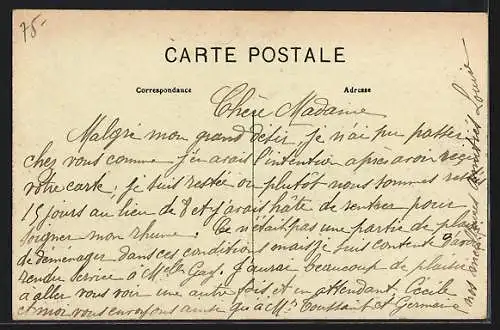 75-
CARTE POSTALE
Correspondance
Adresse
Chère Madame
Malgré mon grand désir je n'ai pu passer
chez vous comme j'en avais l'intention après avoir reçu
votre carte; je suis restée ou plutôt nous sommes
15 jours au lieu de 8 et j'avais hâte de rentrer pour
soigner mon rhume. Ce n'était pas une partie de
de déménager dans ces conditions mais je suis contente d'avoir
rendu service à Melle Gay. J'aurai beaucoup de plaisir
à aller vous voir une autre fois et en attendant Cécile
et moi vous envoyons ainsi qu'à Mr Toussaint et Germaine
nos Louise